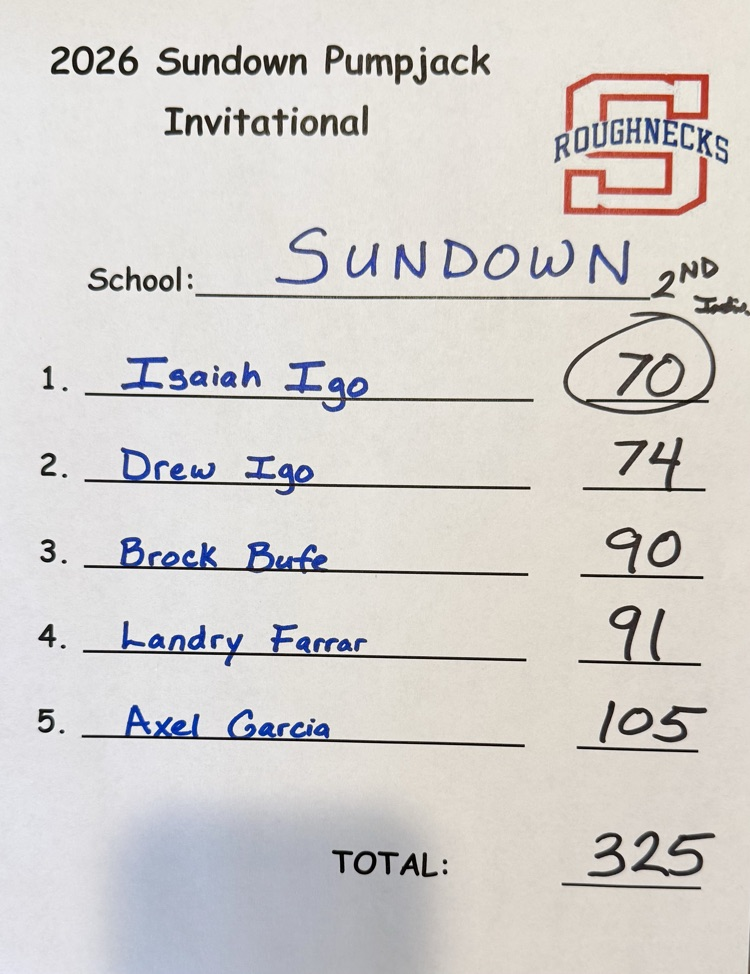 2026 Sundown Pumpjack
Invitational
ROUGHNECKS
School: SUNDOWN 2ND
Indiv.
1. Isaiah Igo 70
2. Drew Igo 74
3. Brock Bufe 90
4. Landry Farrar 91
5. Axel Garcia 105
TOTAL: 325